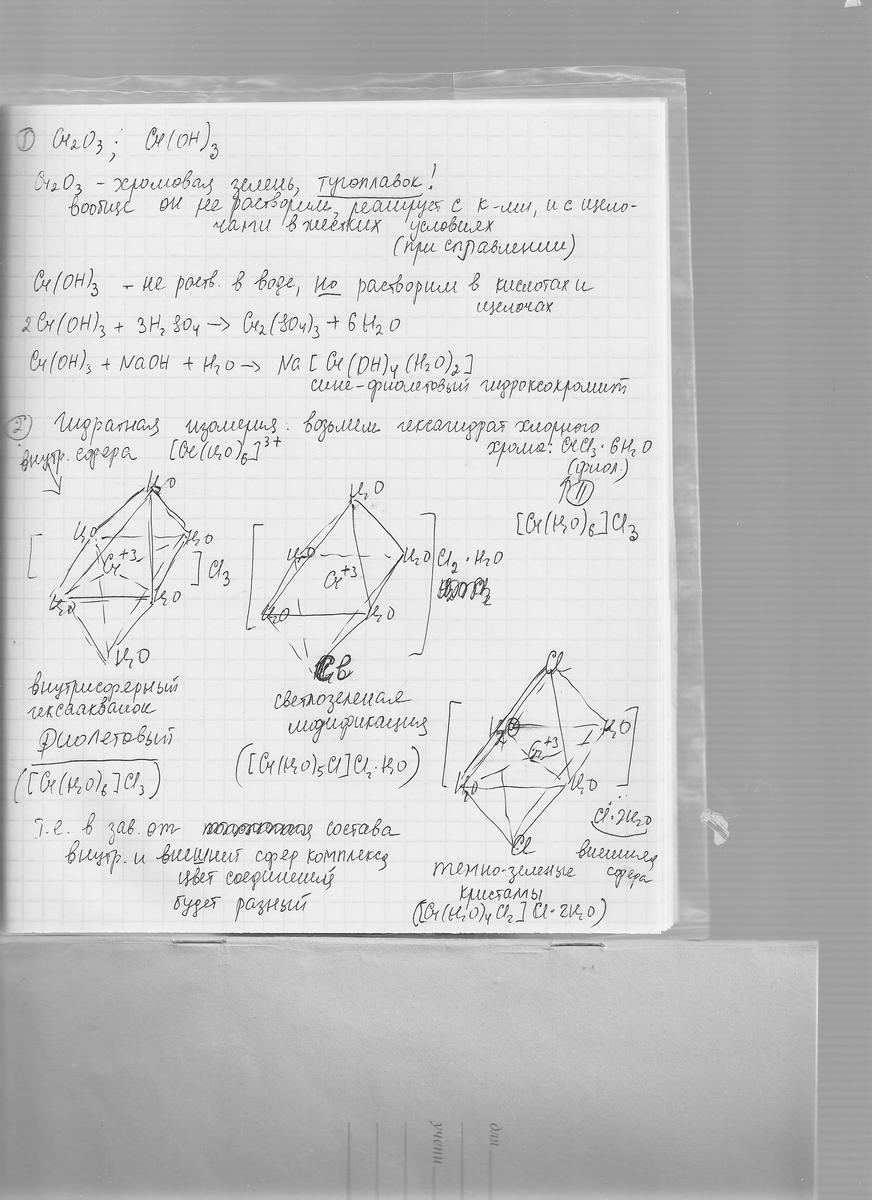 ① Cr₂O₃ ; Cr(OH)₃
Cr₂O₃ – хромовая зелень, тугоплавок!
вообще он не растворим, реагирует с к-ми, и с щело-
чами в жестких условиях
(при сплавлении)
Cr(OH)₃ – не раств. в воде, но растворим в кислотах и
щелочах
2Cr(OH)₃ + 3H₂SO₄ → Cr₂(SO₄)₃ + 6H₂O
Cr(OH)₃ + NaOH + H₂O → Na[Cr(OH)₄(H₂O)₂]
сине-фиолетовый гидроксохромит
② Гидратная изомерия. возьмем гексагидрат хлорного
хрома: CrCl₃·6H₂O
внутр. сфера [Cr(H₂O)₆]³⁺
(фиол.)
↑ II
[Cr(H₂O)₆]Cl₃
[
H₂O
H₂O H₂O
Cr⁺³
H₂O H₂O
H₂O
] Cl₃
внутрисферный
гексаакваион
Фиолетовый
([Cr(H₂O)₆]Cl₃)
[
H₂O
H₂O H₂O
Cr⁺³
H₂O H₂O
] Cl₂·H₂O
светлозеленая
модификация
([Cr(H₂O)₅Cl]Cl₂·H₂O)
[
Cl
H₂O H₂O
Cr⁺³
H₂O H₂O
Cl
]
Cl·2H₂O
внешняя
сфера
темно-зеленые
кристаллы
([Cr(H₂O)₄Cl₂]Cl·2H₂O)
т.е. в зав. от состава
внутр. и внешней сфер комплекса
цвет соединений
будет разный
для
учени